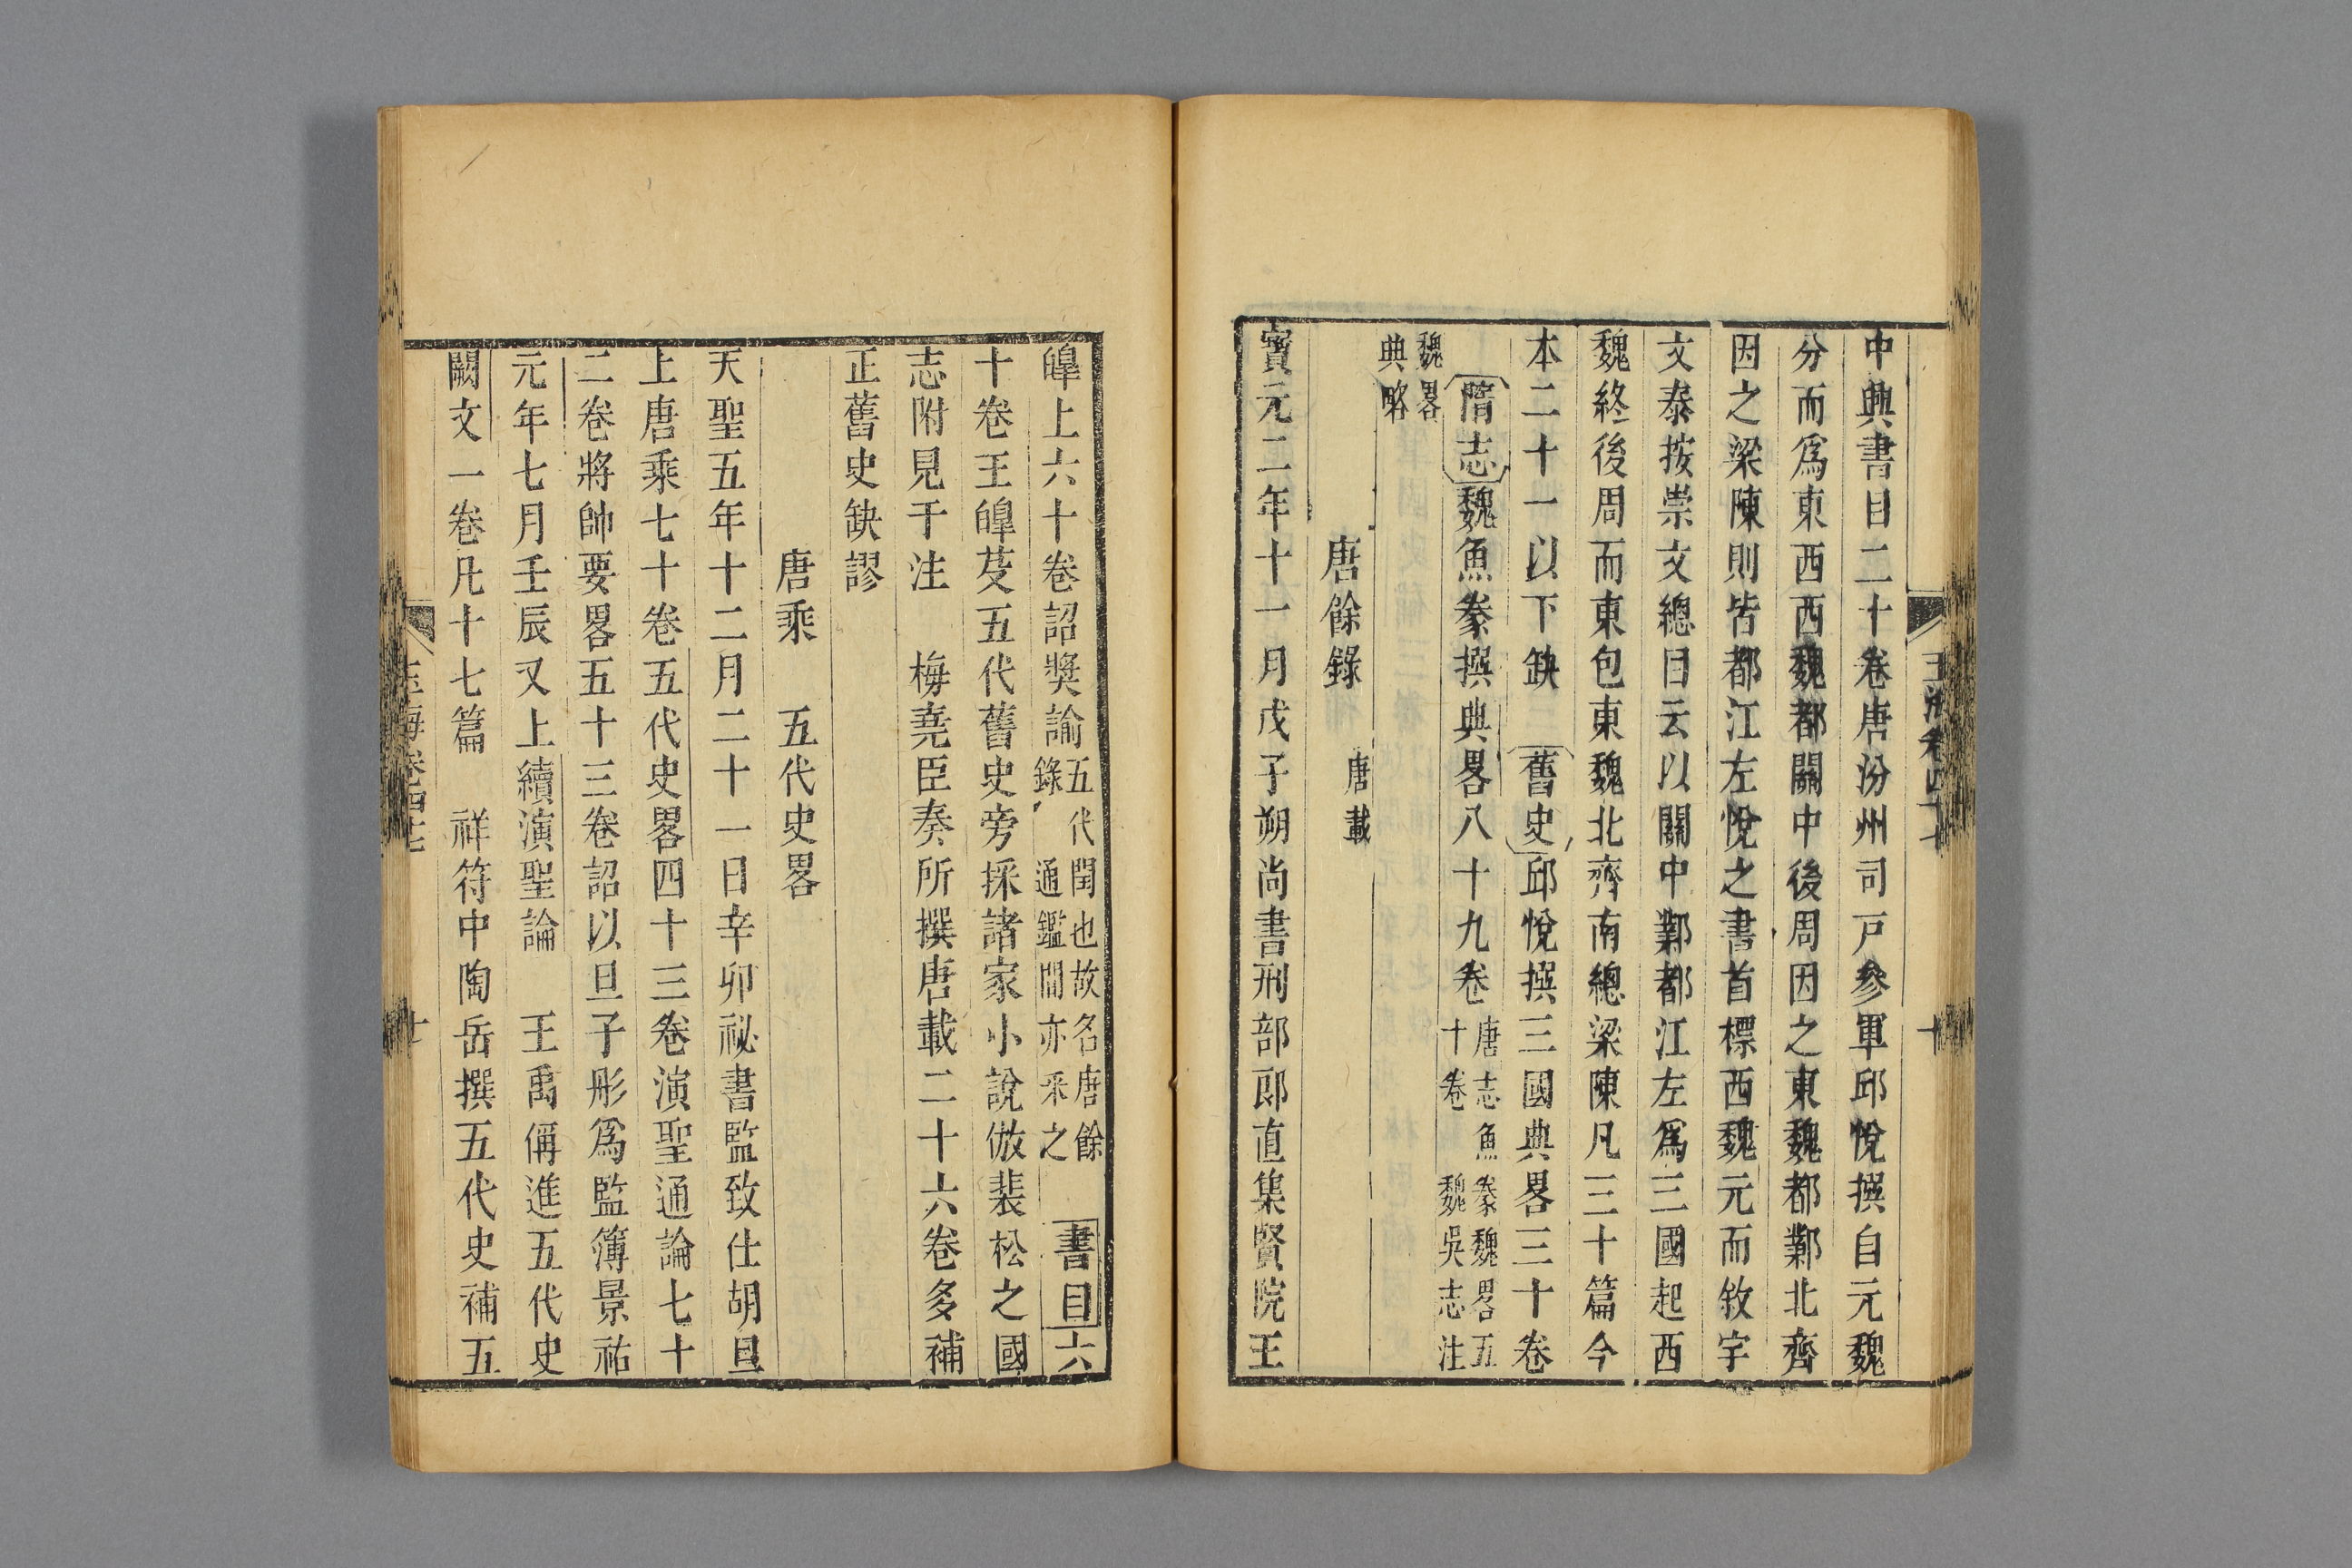 中興書目二十卷唐汾州司戸參軍邱悅撰自元魏
分而爲東西西魏都關中後周因之東魏都鄴北齊
因之梁陳則皆都江左悅之書首標西魏元而敘宇
文泰按崇文總目云以關中鄴都江左爲三國起西
魏終後周而東包東魏北齊南總梁陳凡三十篇今
本二十一以下缺 舊史邱悅撰三國典畧三十卷
隋志魏魚豢撰典畧八十九卷唐志魚豢魏畧五十卷魏吳志注
魏畧典略
唐餘錄 唐載
寳元二年十一月戊子朔尚書刑部郎直集賢院王
玉海卷四十七
十
皥上六十卷詔奬諭五代閏也故名唐餘錄 通鑑間亦采之 書目六
十卷王皥芟五代舊史旁採諸家小說倣裴松之國
志附見于注 梅堯臣奏所撰唐載二十六卷多補
正舊史缺謬
唐乘 五代史畧
天聖五年十二月二十一日辛卯祕書監致仕胡旦
上唐乘七十卷五代史畧四十三卷演聖通論七十
二卷將帥要畧五十三卷詔以旦子彤爲監簿景祐
元年七月壬辰又上續演聖論 王禹偁進五代史
闕文一卷凡十七篇 祥符中陶岳撰五代史補五
玉海卷四十七
十一